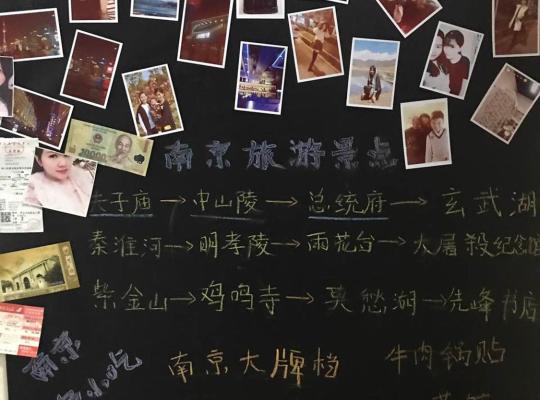 南京旅游景点
夫子庙→中山陵→总统府→玄武湖
秦淮河→明孝陵→雨花台→大屠殺纪念馆
紫金山→鸡鸣寺→莫愁湖→先峰书店
南京
小吃
南京大牌档
牛肉锅贴